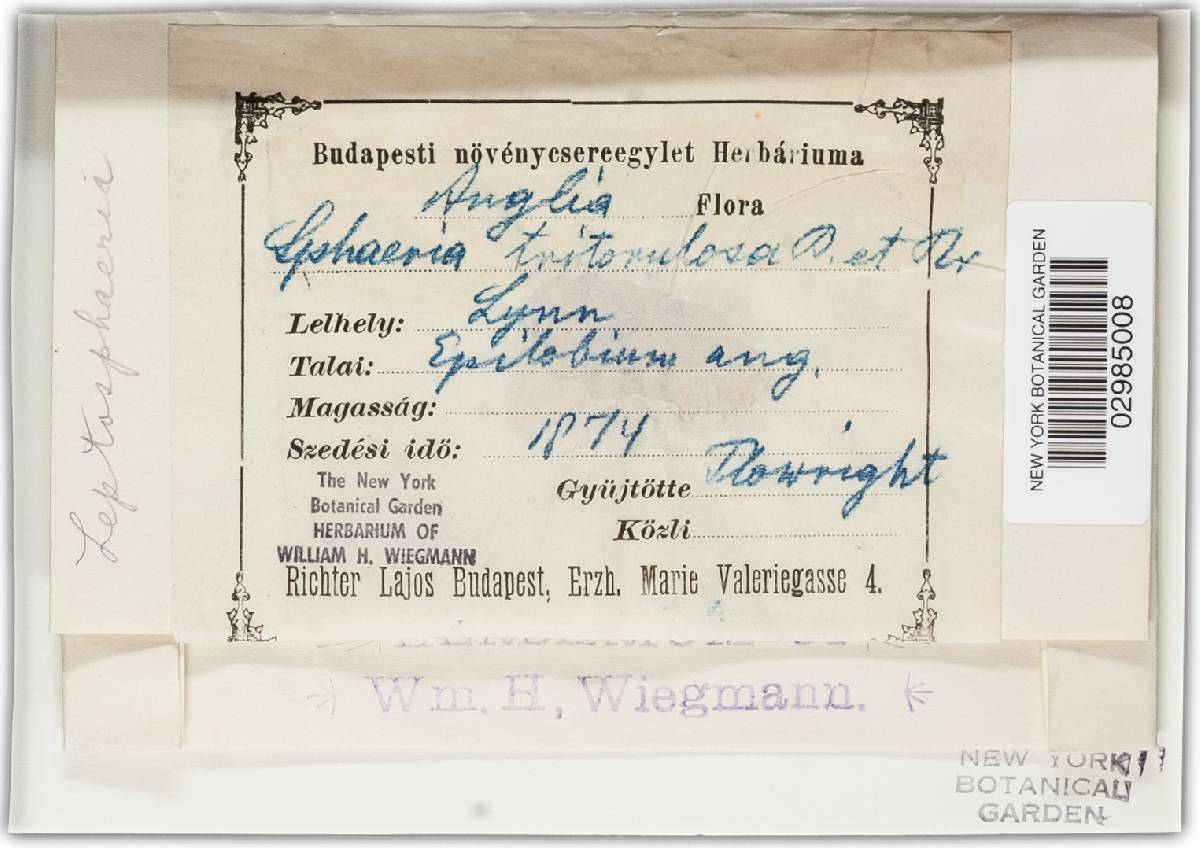 Leptosphaeria
Budapesti növénycsereegylet Herbáriuma
Anglia Flora
Sphaeria tritorulosa B. et Br
Lelhely: Lynn
Talai: Epilobium ang.
Magasság:
Szedési idő: 1874
Gyüjtötte Plowright
Közli
The New York
Botanical Garden
HERBARIUM OF
WILLIAM H. WIEGMANN
Richter Lajos Budapest, Erzh. Marie Valeriegasse 4.
Wm. H, Wiegmann.
NEW YORK BOTANICAL GARDEN
02985008
NEW YORK
BOTANICAL
GARDEN